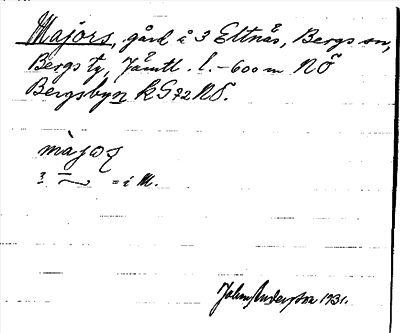 Majors, gård å 3 Eltnås, Bergs sn,
Bergs ty, Jämtl. l. – 600 m NÖ
Bergsbyn kG72NÖ.
màjɷʂ
= i M.
Johan Andersson 1931.